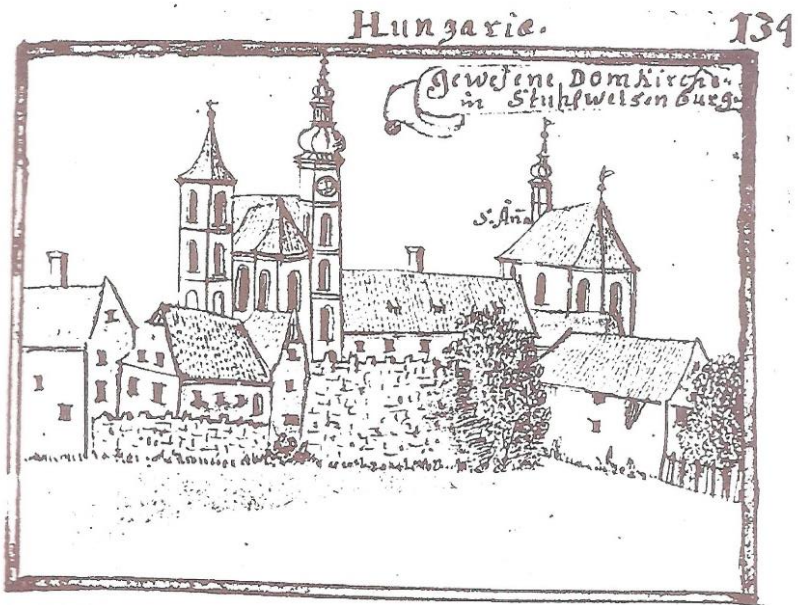 Hungariæ. 134
Gewesene Domkirche
in Stuhlweisenburg
S. Añā